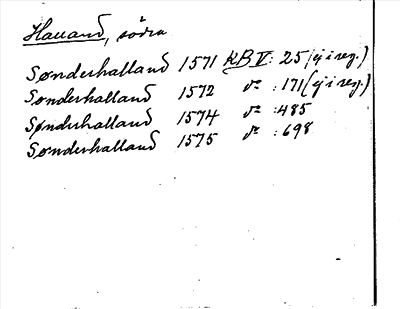 Halland, södra
Sønderhalland 1571 KB V: 25 (ej i reg.)
Sønderhalland 1572 do : 171 (ej i reg.)
Sønderhalland 1574 do : 485
Sønderhalland 1575 do : 698